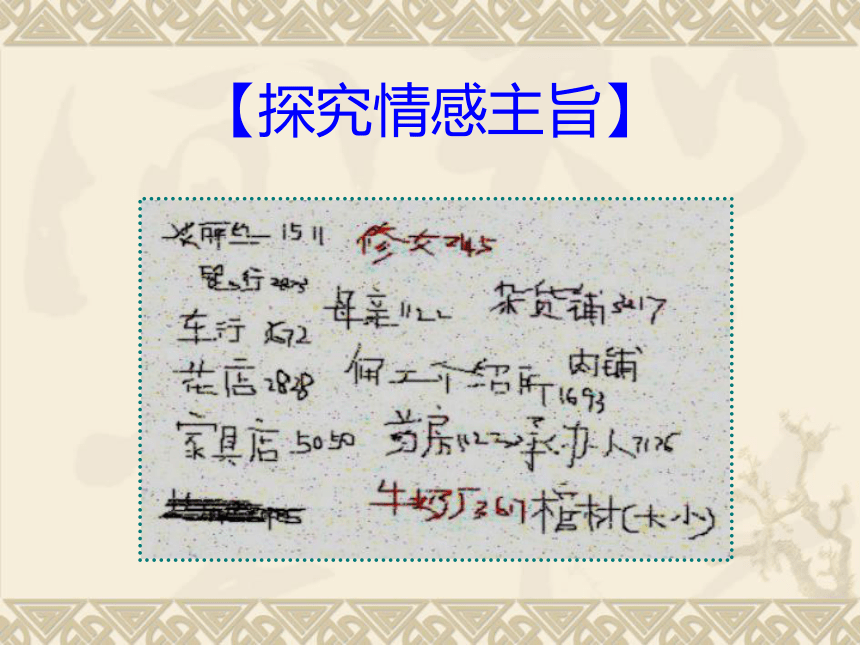 【探究情感主旨】
艾丽丝 1511 修女 2145
银行
母亲 1122 杂货铺 3217
车行
花店 2828 佣工介绍所 肉铺 1693
家具店 5050 药房 承办人
牛奶厂 3617 棺材(大小)